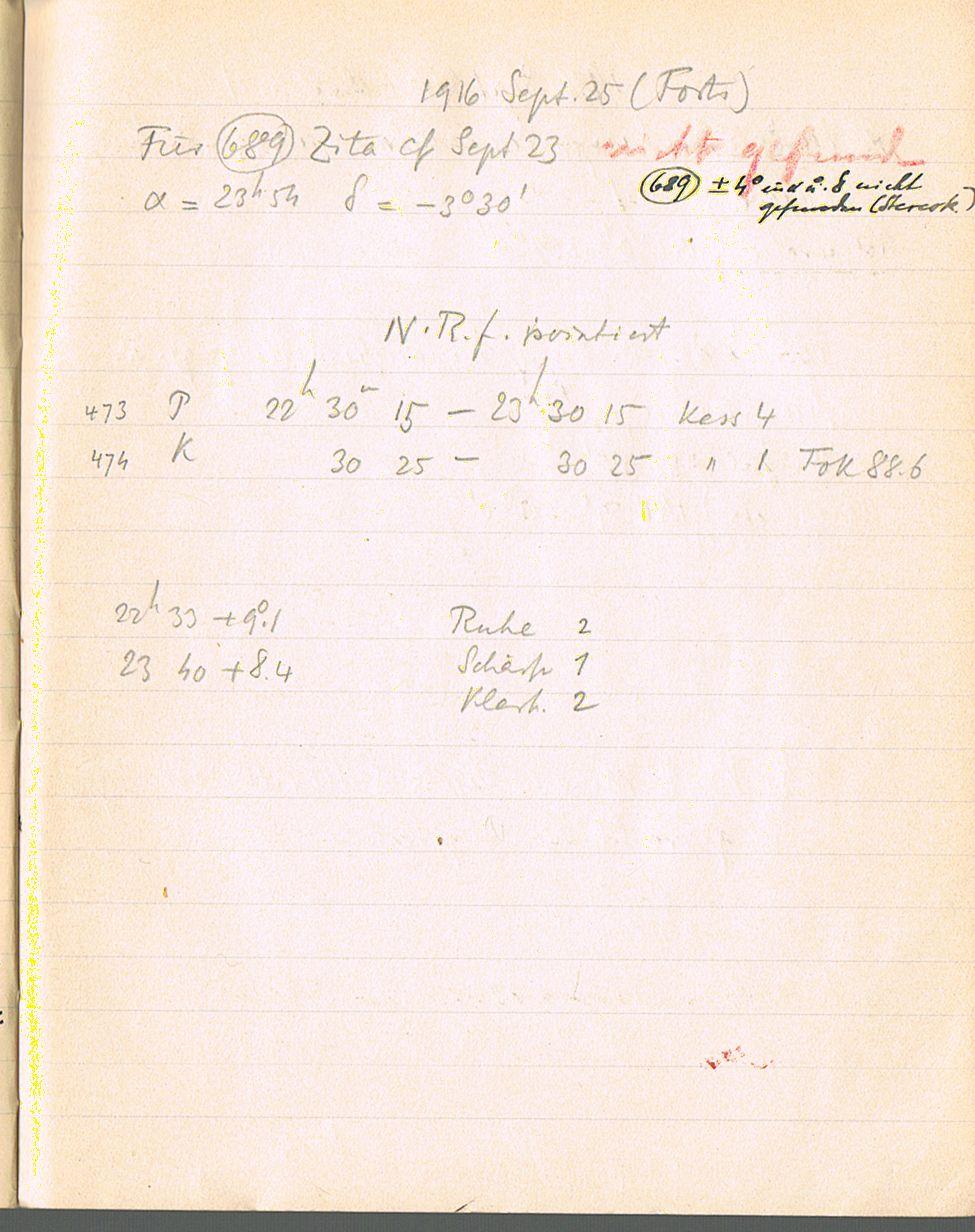 1916 Sept. 25 (Forts)
Für (689) Zita cf Sept 23 nicht gefund
α = 23h 54 δ = -3°30'
(689) ± 4° in α u. δ nicht
gefunden (Stereok.)
N.R.f. pointiert
473 P 22h 30m 15 — 23h 30 15 Kass 4
474 K 30 25 — 30 25 " 1 Fok 88.6
22h 33 +9°.1 Ruhe 2
23 40 +8.4 Schärfe 1
Klarh. 2